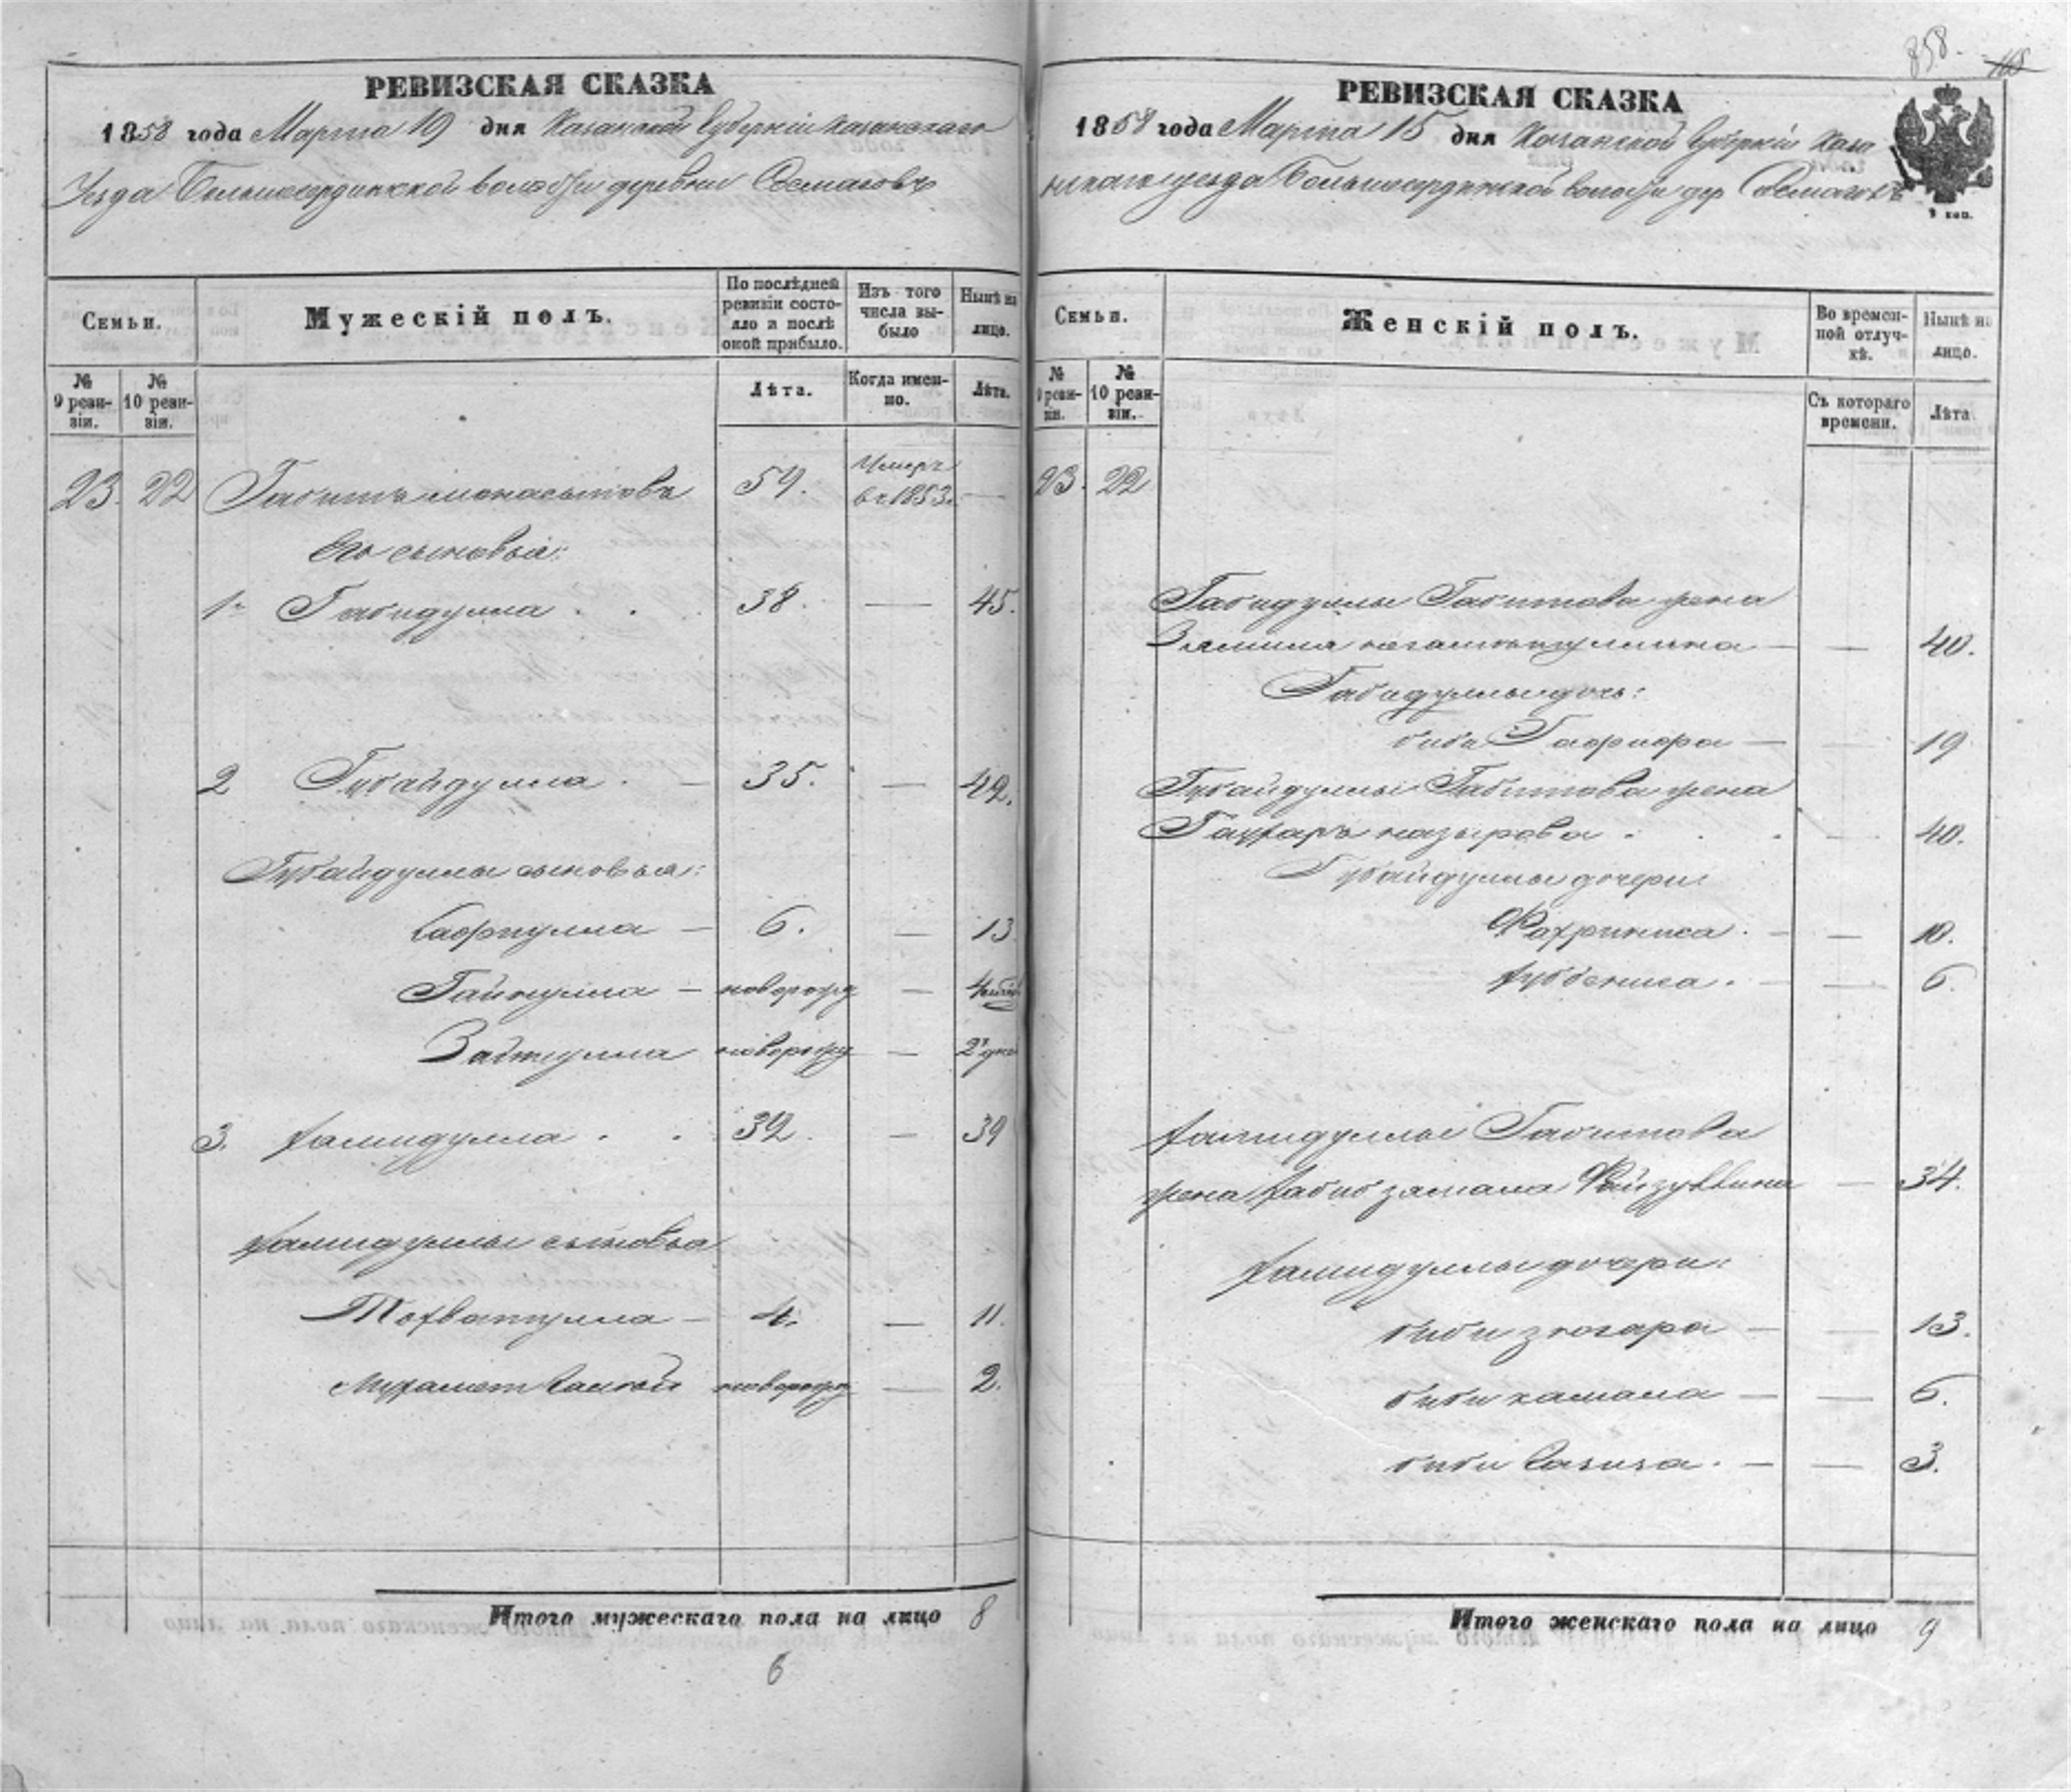 858.
РЕВИЗСКАЯ СКАЗКА
1858 года Марта 19 дня Казанской Губерніи Казанскаго
Уезда Большесердинской волости деревни
Семьи.
Мужескій полъ.
По послѣдней ревизіи состояло и послѣ оной прибыло.
Изъ того числа выбыло
Нынѣ на лицо.
№ 9 ревизіи.
№ 10 ревизіи.
Лѣта.
Когда именно.
Лѣта.
23. 22 Габитъ 54. Умеръ въ 1853. —
Его сыновья:
1. Габидулла . . 38. — 45.
2 Губайдулла . — 35. — 42.
Губайдуллы сыновья:
— 6. — 13
Гайнулла — новорожд — 4
новорожд — 2
3. Хамидулла . . 32. — 39
Хамидуллы сыновья
Тохватулла — 4. — 11.
Мухамет новорожд — 2.
Итого мужескаго пола на лицо 8
6
РЕВИЗСКАЯ СКАЗКА
1858 года Марта 15 дня Казанской Губерніи Каза
нскаго уезда Большесердинской волости дер
Семьи.
Женскій полъ.
Во временной отлучкѣ.
Нынѣ на лицо.
№ 9 ревизіи.
№ 10 ревизіи.
Съ котораго времени.
Лѣта
23. 22
Габидуллы Габитова жена
— — 40.
Габидуллы дочь:
биби — — 19
Губайдуллы Габитова жена
Гаухаръ назырова . . — 40.
Губайдуллы дочери:
Фахриниса . — — 10.
. — — 6.
Хамидуллы Габитова
жена Хабибзямала — 34.
Хамидуллы дочери:
биби зюгара — — 13.
биби камала — — 6.
биби . — — 3.
Итого женскаго пола на лицо 9